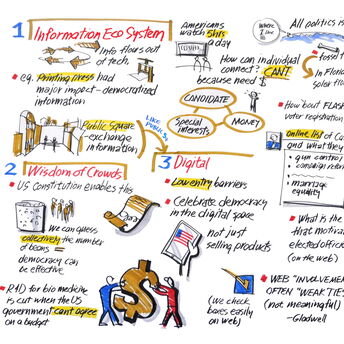 1 Information Eco System
Info flows out
of tech.
• e.g. Printing Press had
major impact - democratized
information
Public Square
- exchange
information
AMERICANS
WATCH 5hrs
a day
How can individual
connect? CAN'T
because need $
CANDIDATE
Special
interests
MONEY
LIKE
PUBLIC $
2 Wisdom of Crowds
• US Constitution enables this
We can guess
collectively the number
of beans =
democracy can
be effective
• R&D for bio medicine
is cut when the US
government can't agree
on a budget
3 Digital
• Low entry barriers
• Celebrate democracy
in the digital space
not just
selling products
(We check
boxes easily
on web)
WHERE
I live
All politics is
In Florid
solar
How 'bout FLASH
voter registration
online list of Ca
and what they
gun control
campaign reform
marriage
equality
• What is the
that motiva
elected officia
(on the web)
• WEB "INVOLVEME
OFTEN "WEAK TIES
(not meaningful)
-Gladwell